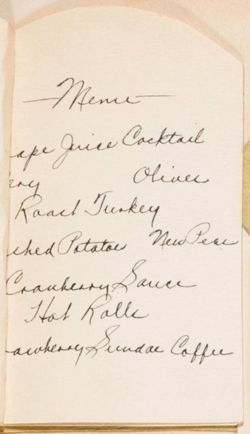 Menu
ape Juice Cocktail
ery Olives
Roast Turkey
shed Potatoes New Peas
Cranberry Sauce
Hot Rolls
awberry Sundae Coffee